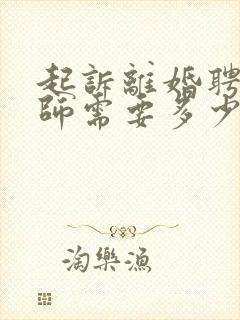 起訴離婚聘
師需要多少
淘樂漁